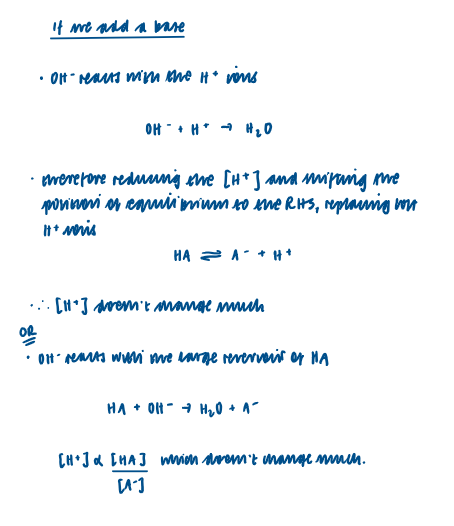 If we add a base
• OH⁻ reacts with the H⁺ ions
OH⁻ + H⁺ → H₂O
• therefore reducing the [H⁺] and shifting the
position of equilibrium to the RHS, replacing lost
H⁺ ions
HA ⇌ A⁻ + H⁺
• ∴ [H⁺] doesn't change much
OR
• OH⁻ reacts with the large reservoir of HA
HA + OH⁻ → H₂O + A⁻
[H⁺] ∝ [HA] which doesn't change much.
[A⁻]